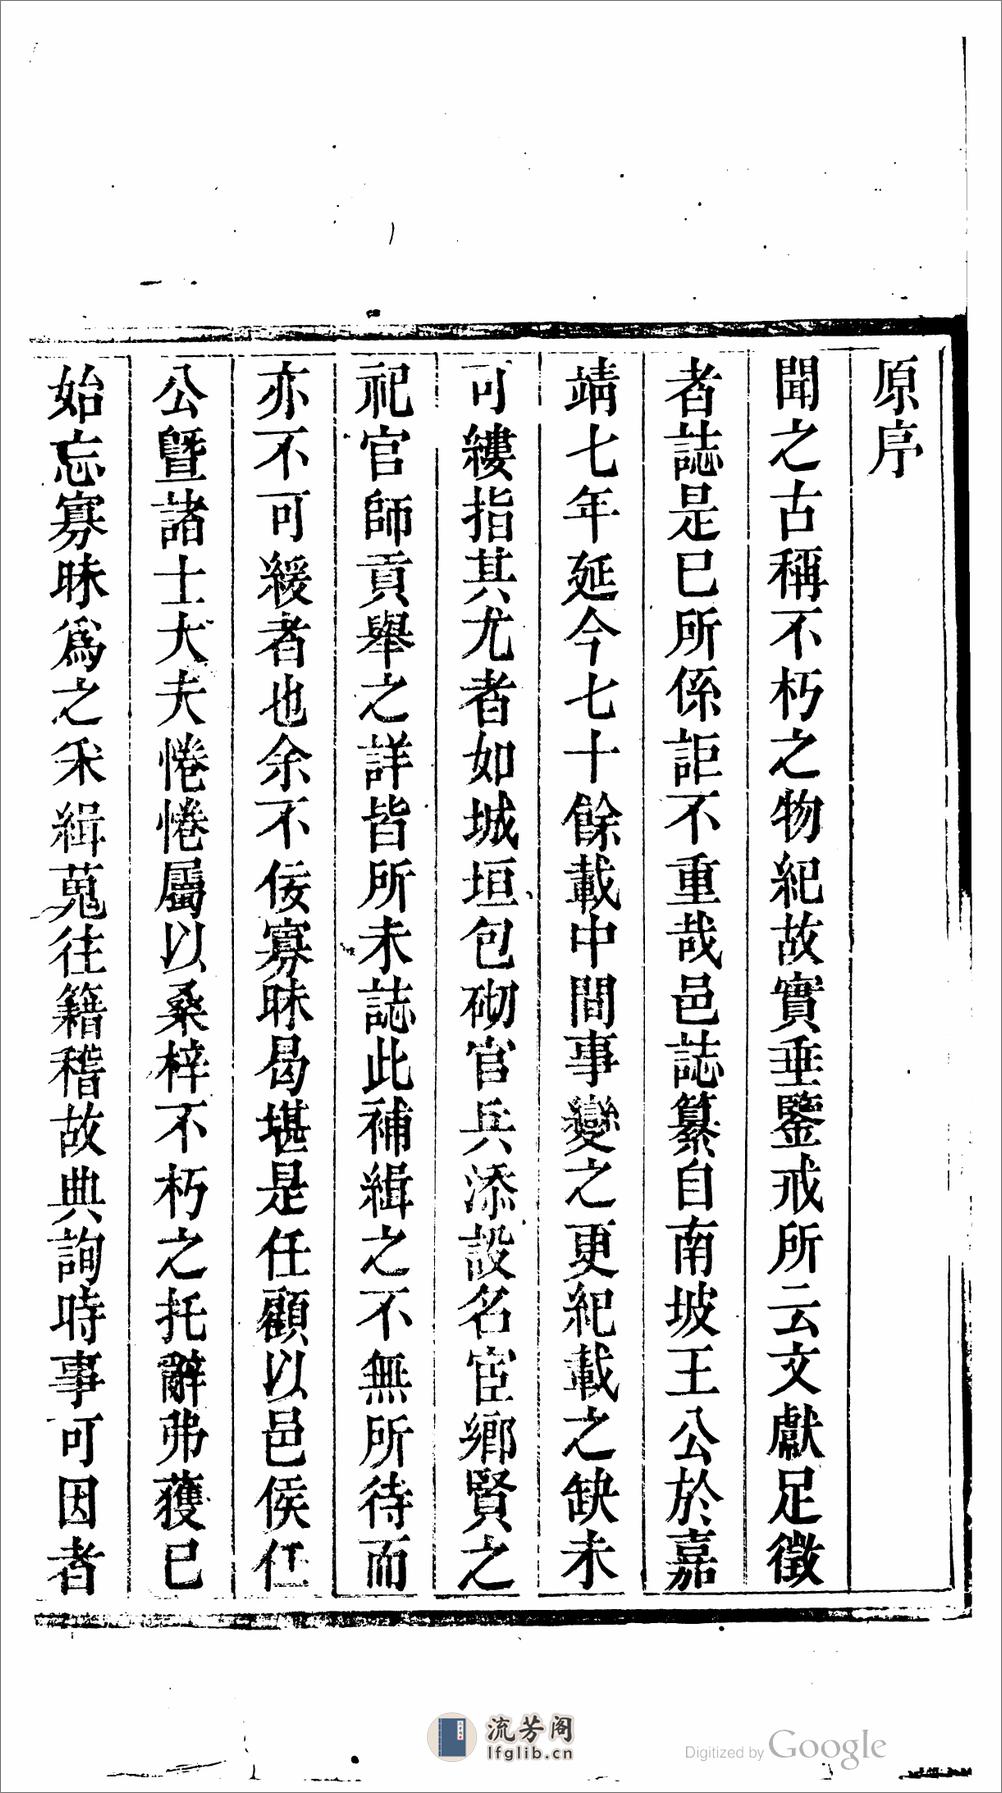 原序
聞之古稱不朽之物紀故實垂鑒戒所云文獻足徵
者誌是已所係詎不重哉邑誌纂自南坡王公於嘉
靖七年延今七十餘載中間事變之更紀載之缺未
可縷指其尤者如城垣包砌官兵添設名宦鄉賢之
祀官師貢舉之詳皆所未誌此補緝之不無所待而
亦不可緩者也余不佞寡昧曷堪是任顧以邑侯仁
公暨諸士大夫惓惓屬以桑梓不朽之托辭弗獲已
始忘寡昧爲之釆緝蒐往籍稽故典詢時事可因者
流芳阁
lfglib.cn
Digitized by Google